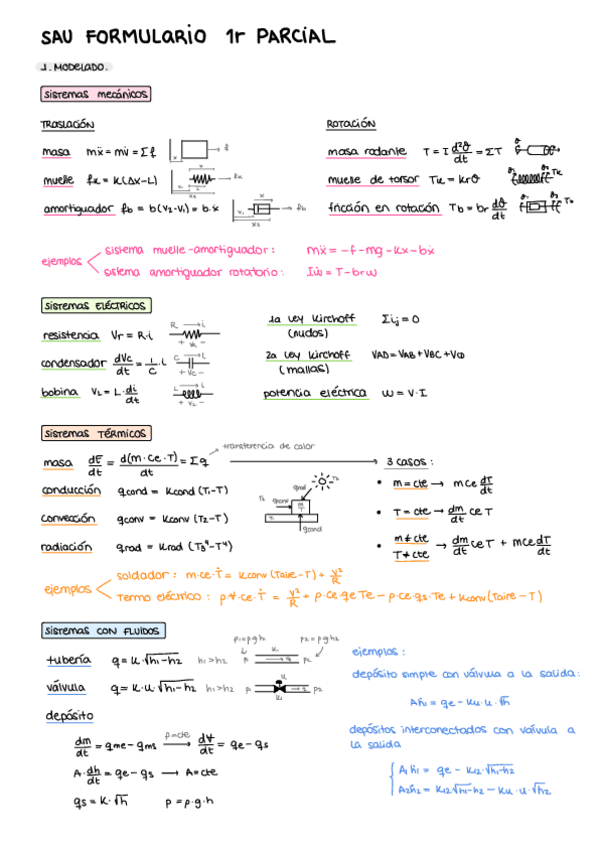 SAU FORMULARIO 1r PARCIAL
1. MODELADO.
sistemas mecánicos
TRASLACIÓN
masa mẍ = mv̇ = Σf
muelle fk = k(Δx-L)
amortiguador fb = b(v2-v1) = b·ẋ
ROTACIÓN
masa rodante T = I d²θ/dt = ΣT
muese de torsor Tk = krθ
fricción en rotación Tb = br dθ/dt
ejemplos
sistema muelle-amortiguador: mẍ = -f-mg-kx-bẋ
sistema amortiguador rotatorio: Iẇ = T-brw
sistemas ELÉCTRICOS
resistencia Vr = R·i
condensador dVc/dt = 1/C · i
bobina VL = L·di/dt
1a Ley Kirchoff (nudos) Σij = 0
2a Ley Kirchoff (mallas) VAD=VAB+VBC+VCD
potencia eléctrica W = V·I
sistemas TÉRMICOS
masa dE/dt = d(m·ce·T)/dt = Σq
transferencia de calor
conducción qcond = kcond (T1-T)
convección qconv = kconv (T2-T)
radiación qrad = krad (T3⁴-T⁴)
3 casos:
• m=cte → mce dT/dt
• T=cte → dm/dt ceT
• m≠cte T≠cte → dm/dt ceT + mce dT/dt
ejemplos
soldador: m·ce·Ṫ = kconv (Taire-T) + V²/R
Termo eléctrico: ρ·V·ce·Ṫ = V²/R + ρ·ce·qe Te - ρ·ce qs·Te + kconv (Taire-T)
sistemas CON FLUIDOS
tubería q = k·√h1-h2 h1>h2
p1=ρgh p2=ρgh2
válvula q = k·u·√h1-h2 h1>h2
depósito
dm/dt = qme-qms → ρ=cte dV/dt = qe-qs
A·dh/dt = qe-qs → A=cte
qs = k·√h p = ρ·g·h
ejemplos:
depósito simple con válvula a la salida:
Aḣ1 = qe - ku·u·√h
depósitos interconectados con valvula a
la salida
A1ḣ1 = qe - k12·√h1-h2
A2ḣ2 = k12√h1-h2 - ku·u·√h2